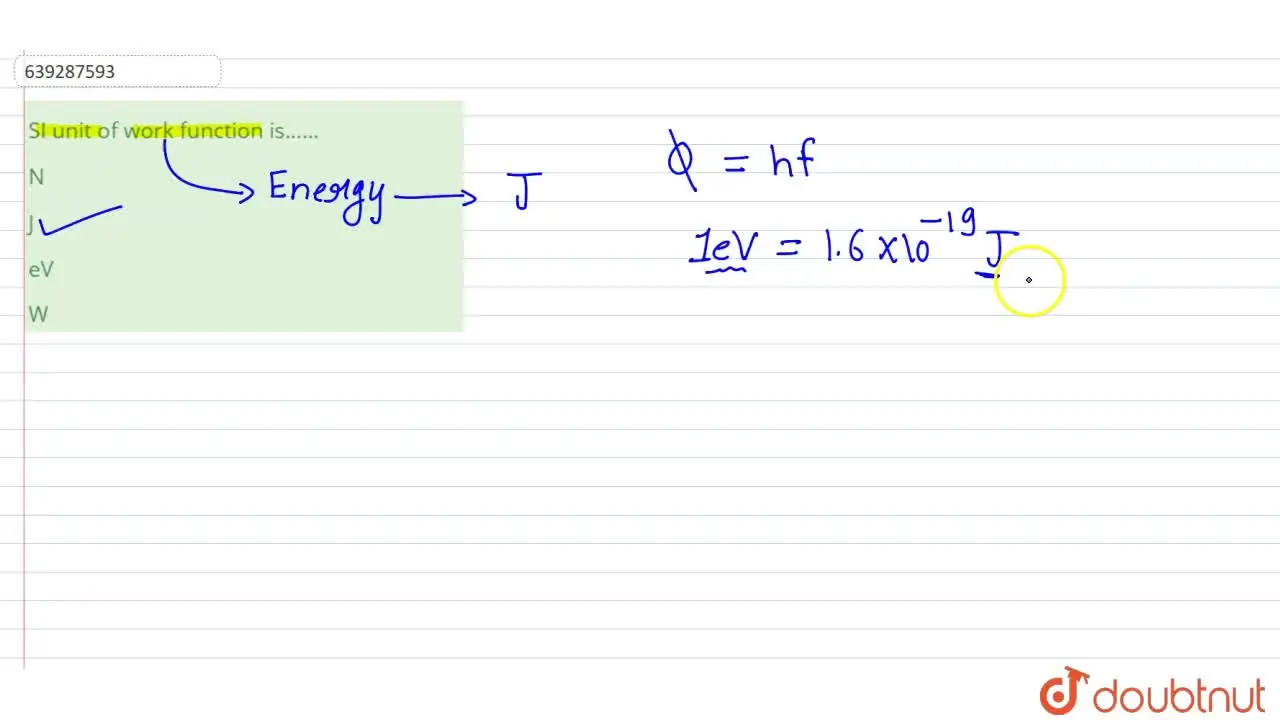 639287593
SI unit of work function is......
N
J
eV
W
Energy → J
ϕ = hf
1eV = 1.6 × 10⁻¹⁹ J
doubtnut